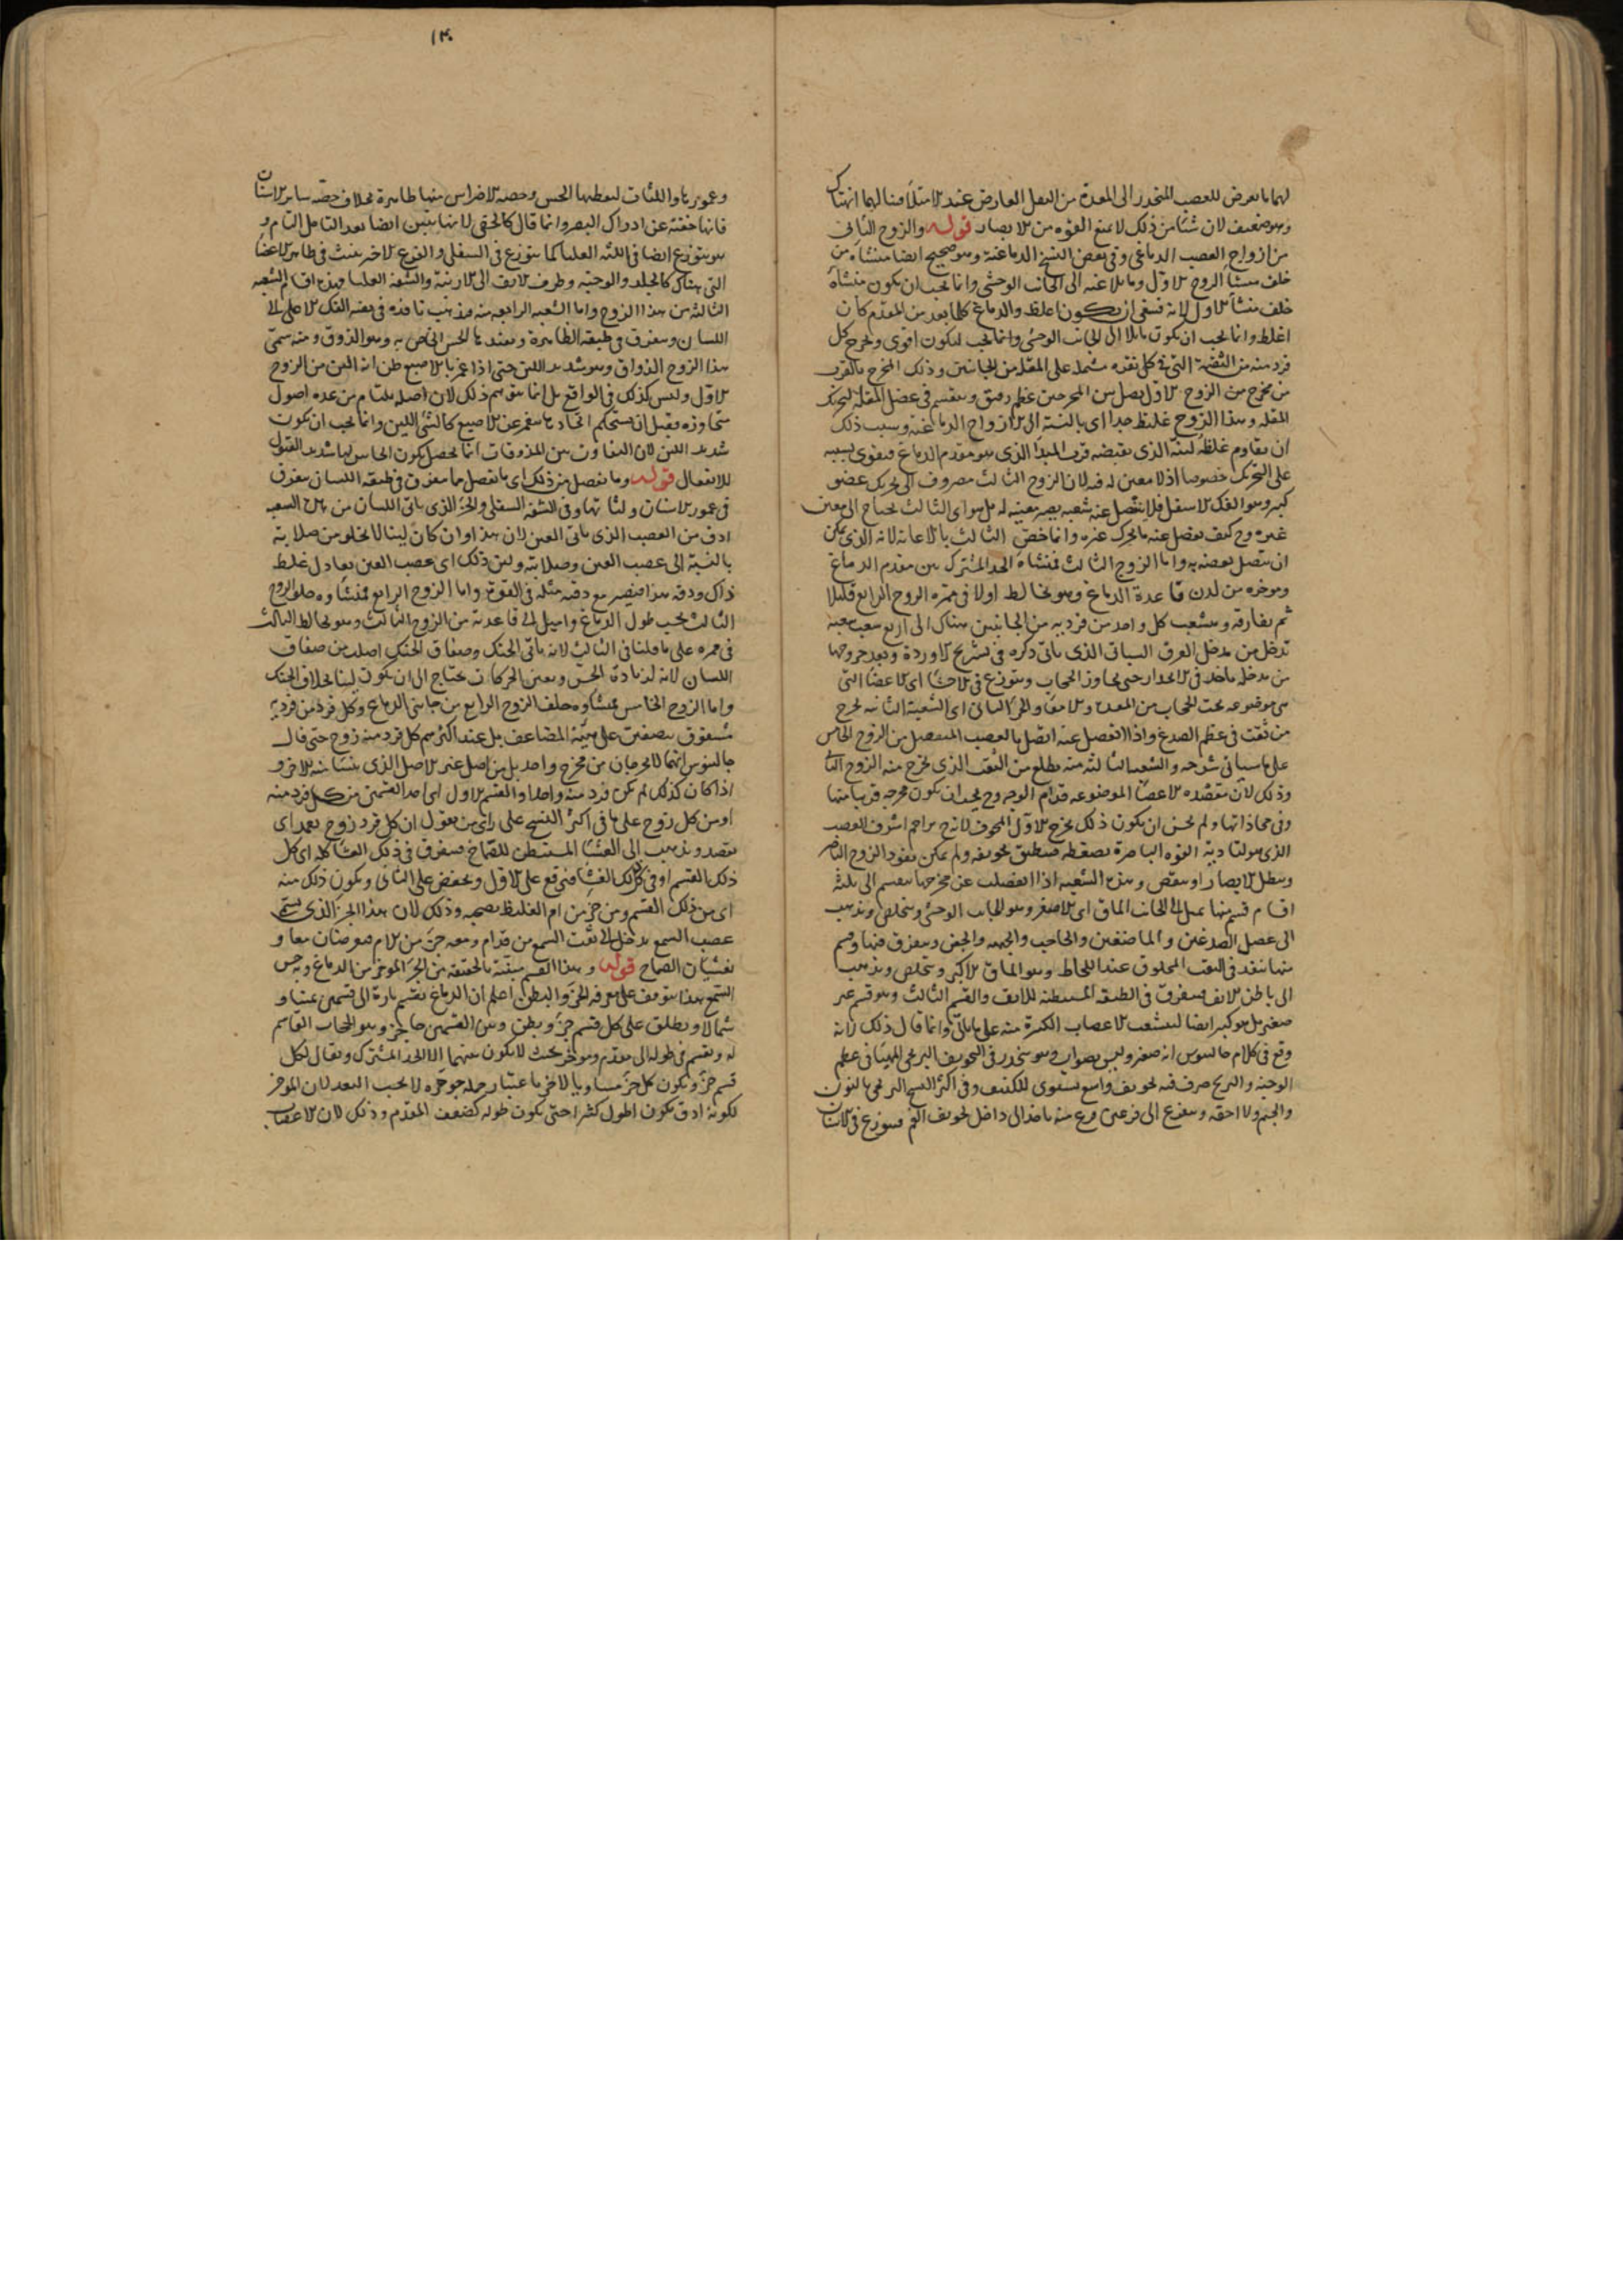 لهما ما يعرض للعصب المنحدر الى المعدة من الثقل العارض عند الامتلاء
وهو ضعيف لان شيئا من ذلك لا يمنع القوه من الابصار قوله والزوج الثانى
من ازواج العصب الدماغى وفى بعض النسخ الدماغية وهو صحيح ايضا منشاه من
خلف منشأ الزوج الاول ومايلا عنه الى الجانب الوحشى وانما يجب ان يكون منشاه
خلف منشأ الاول لانه ينبغى ان يكون اغلظ والدماغ كلما بعد من المقدم كان
اغلظ وانما يجب ان يكون مايلا الى الجانب الوحشى وانما يجب ليكون اقوى ويخرج كل
فرد منه من الثقبة التى فى كل نقره مشتمله على المقله من الجانبين وذلك المخرج بالقرب
من مخرج الزوج الاول يصل بين المخرجين عظم رقيق وينقسم فى عضل المقلة
المقله وهذا الزوج غليظ جدا اى بالنسبة الى الازواج الدماغيه وسبب ذلك
ان يقاوم غلظه لينه الذى يقتضيه قرب المبدأ الذى هو مقدم الدماغ فيقوى بسببه
على التحريك خصوصا اذ لا معين له فيه لان الزوج الثالث مصروف الى تحريك عضو
كبير وهو الفك الاسفل فلا ينفصل عنه شعبه يصير معينه له بل هو اى الثالث يحتاج الى معين
غيره وح كيف يفضل عنه ما يحرك غيره وانما خص الثالث بالاعانه لانه الذى يمكن
ان يتصل بعضه به واما الزوج الثالث فمنشاه الحد المشترك بين مقدم الدماغ
وموخره من لدن قاعدة الدماغ وهو يخالط اولا فى ممره الزوج الرابع قليلا
ثم يفارقه ويتشعب كل واحد من فرديه من الجانبين هناك الى اربع شعب شعبه
تدخل من مدخل العرق السباتى الذى ياتى ذكره فى تشريح الاوردة وبعد خروجها
من مدخله ياخذ فى الانحدار حتى يجاوز الحجاب ويتوزع فى الاحشا اى الاعضا التى
هى موضوعه تحت الحجاب من المعده والامعا والجزء الثانى اى الشعبة الثانيه تخرج
من ثقب فى عظم الصدغ واذا انفصل عنه اتصل بالعصب المنفصل من الزوج الخامس
على ما سياتى شرحه والشعبه الثالثه منه يطلع من الثقب الذى يخرج منه الزوج الثانى
وذلك لان مقصده الاعضا الموضوعه قدام الوجه وح يجب ان يكون مخرجه قريبا منها
وفى محاذاتها ولم يحسن ان يكون ذلك مخرج الاول المجوف لانه ح يزاحم اشرف العصب
الذى هو لتادية القوه الباصرة بضغطه فينطبق تجويفه ولم يمكن نفوذ الروح الباصر
وبطل الابصار او ينقص وهذه الشعبه اذا انفصلت عن مخرجها ينقسم الى ثلثه
اقسام قسم منها يميل الى الجانب الماق اى الاصغر وهو الجانب الوحشى ويتخلص ويذهب
الى عضل الصدغين والماضغين والحاجب والجبهه والجفن ويتفرق فيها وقسم
منها ينفذ فى الثقب المخلوق عند اللحاظ وهو الماق الاكبر ويتخلص ويذهب
الى باطن الانف فيتفرق فى الطبقه المستبطنه للانف والقسم الثالث وهو قسم غير
صغير بل هو كبير ايضا لتشعب الاعصاب الكثيرة منه على ما ياتى وانما قال ذلك لانه
وقع فى كلام جالينوس انه صغير وليس بصواب وهو ينحدر فى التجويف البربخى المهيا فى عظم
الوجنه والبربخ صرف فيه تجويف واسع يستوى للكنيف وفى اكثر النسخ البرنجى بالنون
والجيم ولا احقه ويتفرع الى فرعين فرع منه ياخذ الى داخل تجويف الفم فيتوزع فى الاسنان
١٣٠
وعمورها واللثات ليعطيها الحس وحصه الاضراس منها ظاهرة بخلاف حصه ساير الاسنان
فانها خفيه عن ادراك البصر وانما قال كالخفى لانها يتبين ايضا بعد التامل التام و
هو يتوزع ايضا فى اللثه العليا كما يتوزع فى السفلى والفرع الاخر ينبث فى ظاهر الاعضا
التى هناك كالجلد والوجنه وطرف الانف الى الارنبة والشفه العليا فهذه اقسام الشعبه
الثالثه من هذا الزوج واما الشعبه الرابعه منه فيذهب نافذه فى ثقبه الفك الاعلى الى
اللسان ويتفرق فى طبقته الظاهرة ويفيدها الحس الخاص به وهو الذوق ومنه سمى
هذا الزوج الذواق وهو شديد اللين حتى اذا غمز بالاصبع ظن انه الين من الزوج
الاول وليس كذلك فى الواقع بل انما يتوهم ذلك لان اصله يلتئام من عده اصول
متجاوزه يقبل ان يستحكم اتحادها كالشى اللين وانما يجب ان يكون
شديد اللين لان التفاوت بين المذوقات انما يحصل بكون الحاس لها شديد القبول
للانفعال قوله وما ينفصل من ذلك اى ما يفصل مما يتفرق فى طبقه اللسان يتفرق
فى عمور الاسنان ولثاتها وفى الشفه السفلى والجزء الذى ياتى اللسان من هذه الشعبه
ادق من العصب الذى ياتى العين لان هذا وان كان لينا لا يخلو من صلابة
بالنسبة الى عصب العين وصلابته ولين ذلك اى عصب العين يعادل غلظ
ذاك ودقه هذا فيصير مع دقته مثله فى القوة واما الزوج الرابع فمنشاوه خلف الزوج
الثالث بحسب طول الدماغ واميل الى قاعدته من الزوج الثالث وهو يخالط الثالث
فى ممره على ما قلنا فى الثالث لانه ياتى الحنك وصفاق الحنك اصلب من صفاق
اللسان لانه لزيادة الحس ويعين الحركات يحتاج الى ان يكون لينا بخلاف الحنك
واما الزوج الخامس فمنشاوه خلف الزوج الرابع من جانبى الدماغ وكل فرد من فرديه
مشقوق بنصفين على هيئة المضاعف بل عند اكثرهم كل فرد منه زوج حتى قال
جالينوس انهما لا يخرجان من مخرج واحد بل من اصل غير الاصل الذى ينشا منه الاخر و
اذا كان كذلك لم يكن فرد منه واحدا والقسم الاول اى احد القسمين من كل فرد منه
او من كل زوج على ما فى اكثر النسخ على راى من يقول ان كل فرد زوج يعمد اى
يقصد ويذهب الى الغشا المستبطن للصماخ فيتفرق فى ذلك الغشا كله اى كل
ذلك القسم او فى كل ذلك الغشا فيرتفع على الاول وينخفض على الثانى ويكون ذلك منه
اى من ذلك القسم ومن جزء من ام الغليظ يصحبه وذلك لان هذا الجزء الذى يسمى
عصب السمع يدخل الى ثقب السمع من قدام ومعه جزء من الام معا و
يغشيان الصماخ قوله وهذا القسم منبته بالحقيقه من الجزء الموخر من الدماغ وبه حس
السمع هذا يتوقف على معرفه الجزء والبطن اعلم ان الدماغ يقسم تارة الى قسمين يمينا و
شمالا ويطلق على كل قسم جزء وبطن وبين القسمين حاجز وهو الحجاب القاسم
له ويقسم فى طوله الى مقدم وموخر بحيث لا يكون بينهما الا الحد المشترك ويقال لكل
قسم جزء ويكون كل جزء مساويا لاخر باعتبار جمله جوهره لا بحسب البعد لان الموخر
لكونه ادق يكون اطول كثيرا حتى يكون طوله كضعف المقدم وذلك لان الاعصاب